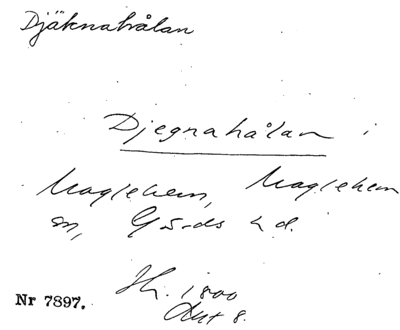 Djäknahålan
Djegnahålan i
Maglehem, Maglehem
sn, Gärds hd.
Sk. 1800
Akt 8.
Nr 7897.